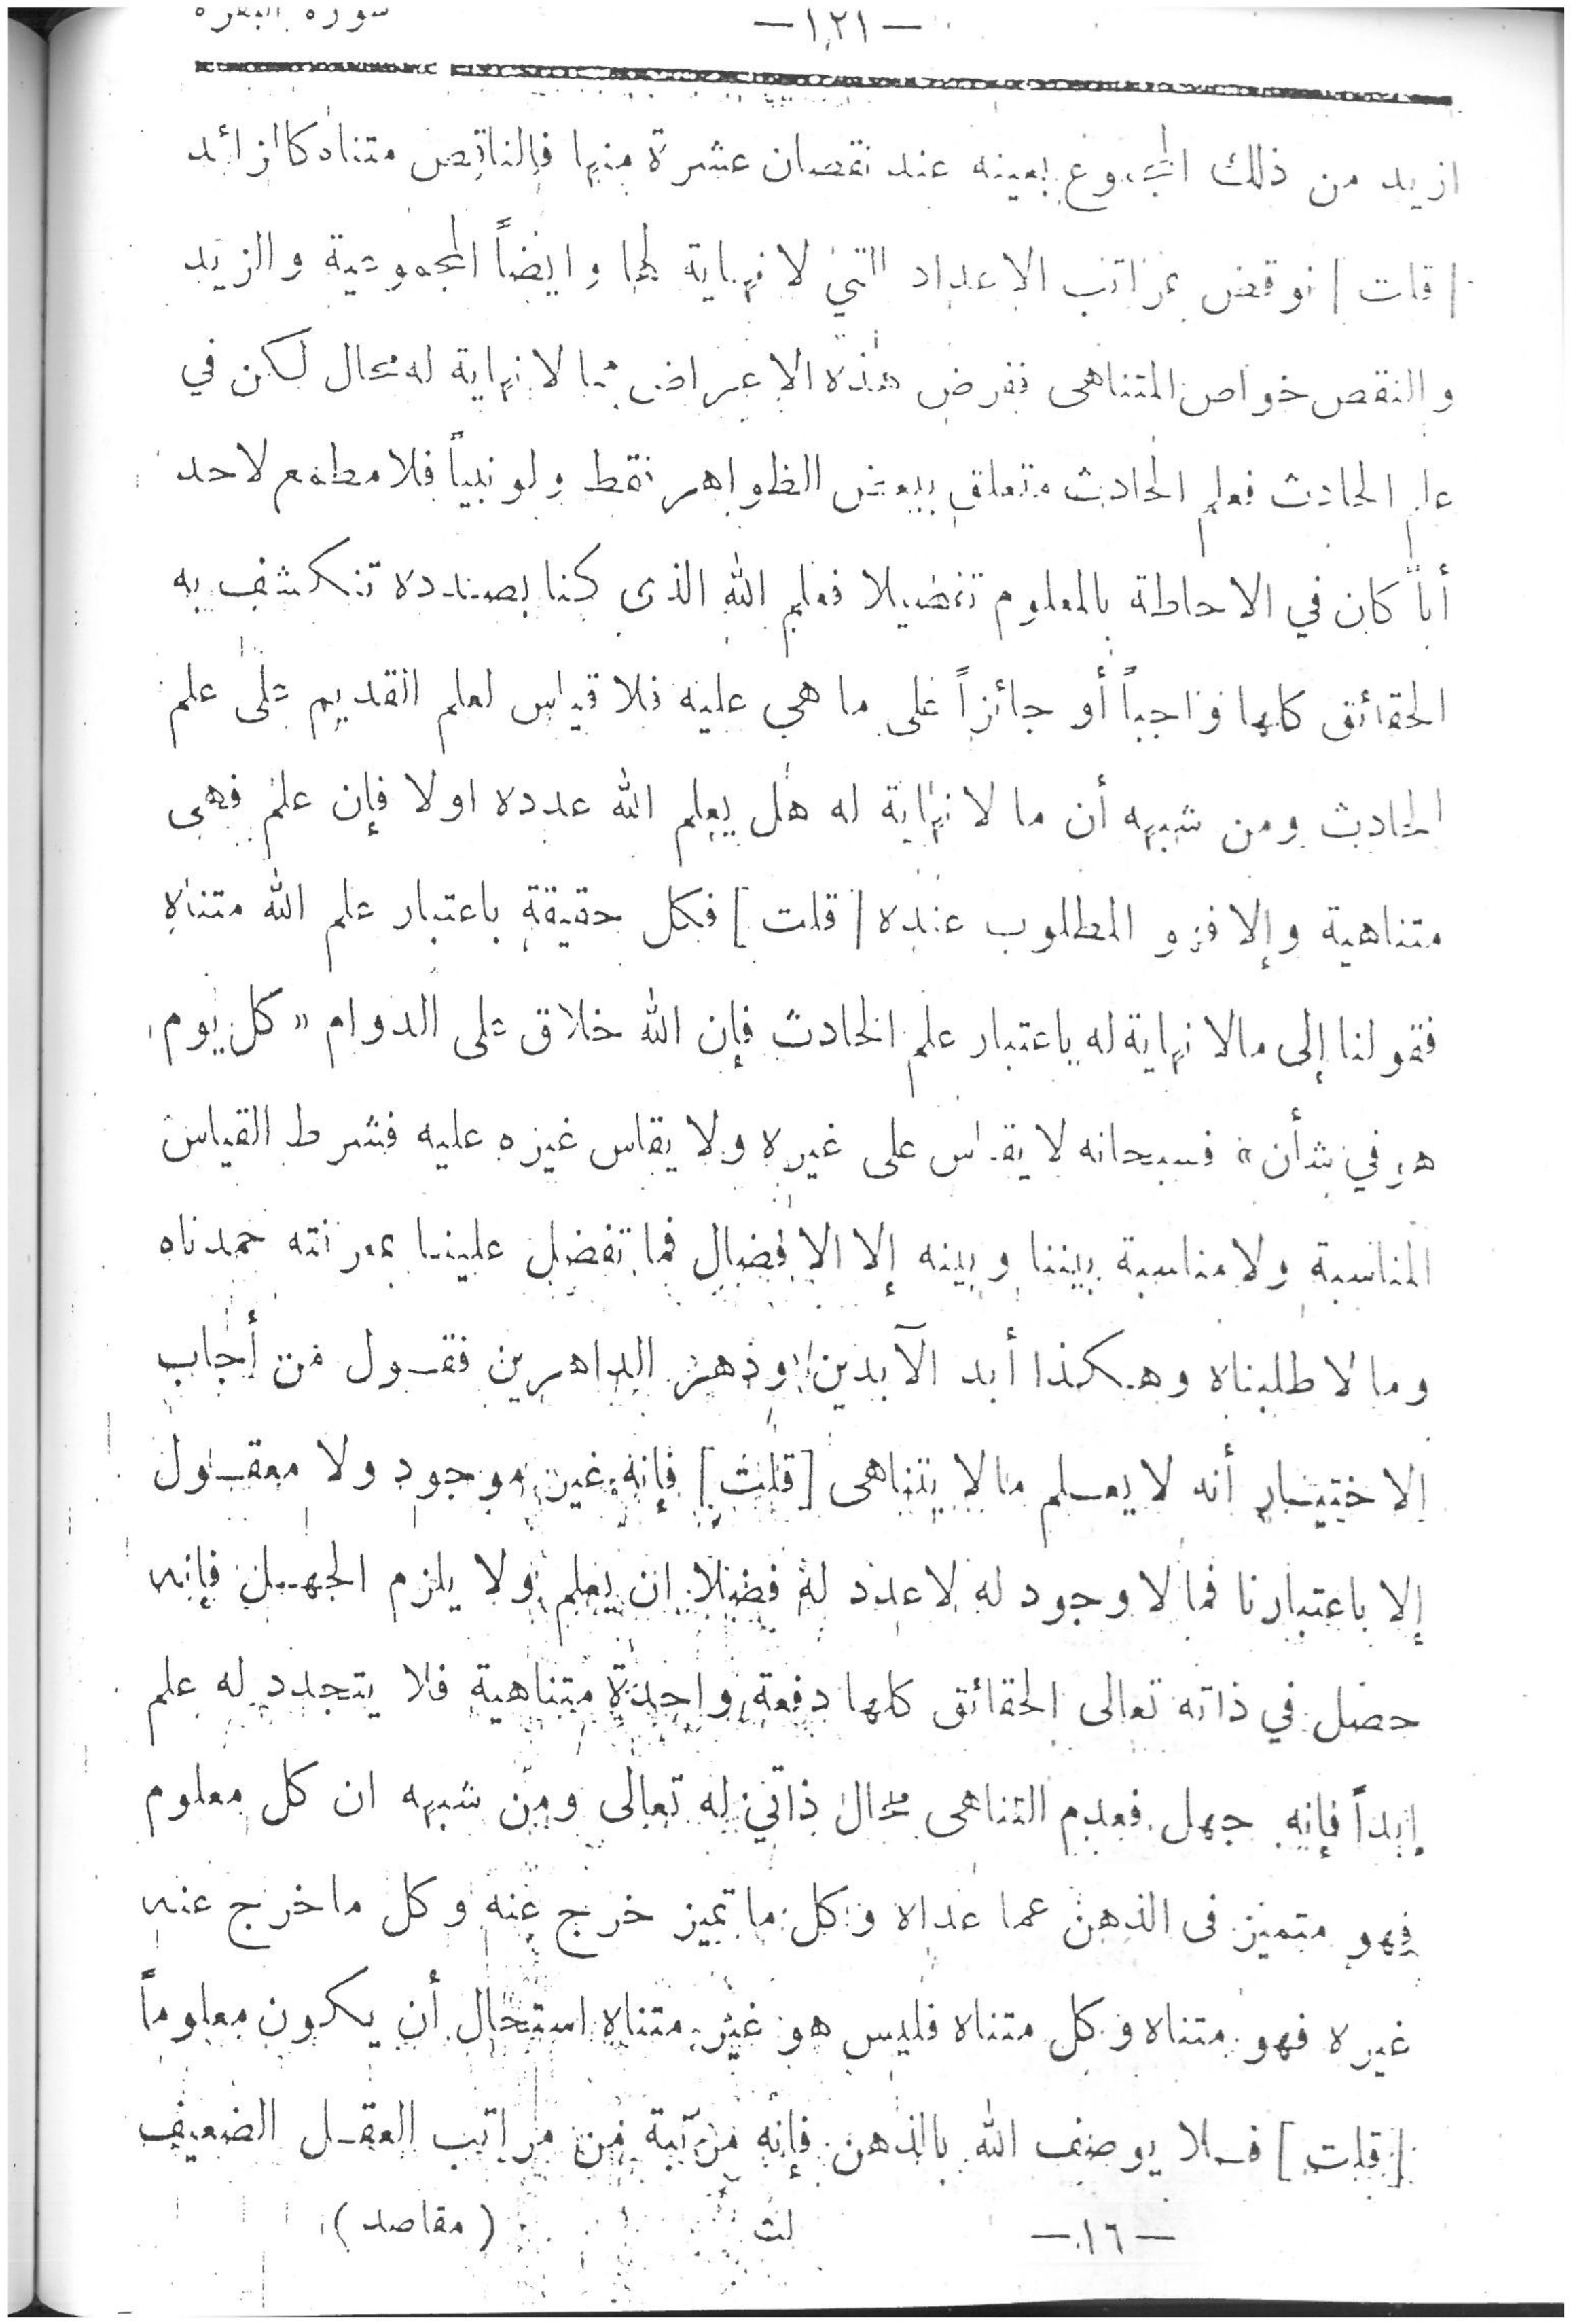 سورة البقرة —١٢١—
ازيد من ذلك المجموع بعينه عند نقصان عشرة منها فالناقص متناه كالزائد
[قلت] نوقض بمراتب الاعداد التي لا نهاية لها وايضاً المجموعية والزيد
والنقص خواص المتناهى ففرض هذه الاعراض بما لا نهاية له محال لكن في
علم الحادث فعلم الحادث متعلق ببعض الظواهر فقط ولو نبياً فلا مطمع لاحد
أياً كان في الاحاطة بالمعلوم تفصيلا فعلم الله الذى كنا بصدده تنكشف به
الحقائق كلها واجباً أو جائزاً على ما هي عليه فلا قياس لعلم القديم على علم
الحادث ومن شبهه أن ما لا نهاية له هل يعلم الله عدده اولا فإن علم فهى
متناهية وإلا فهو المطلوب عنده [قلت] فكل حقيقة باعتبار علم الله متناه
فقولنا إلى مالا نهاية له باعتبار علم الحادث فإن الله خلاق على الدوام «كل يوم
هو في شأن» فسبحانه لا يقاس على غيره ولا يقاس غيره عليه فشرط القياس
المناسبة ولا مناسبة بيننا وبينه إلا الافضال فما تفضل علينا بمعرفته حمدناه
وما لا طلبناه وهكذا أبد الآبدين ودهر الداهرين فقول من أجاب
الاختيار أنه لا يعلم مالا يتناهى [قلت] فإنه غير موجود ولا معقول
إلا باعتبارنا فما لا وجود له لا عدد له فضلا ان يعلم ولا يلزم الجهل فإنه
حصل في ذاته تعالى الحقائق كلها دفعة واحدة متناهية فلا يتجدد له علم
ابداً فإنه جهل فعدم التناهى محال ذاتي له تعالى ومن شبهه ان كل معلوم
فهو متميز فى الذهن عما عداه وكل ما تميز خرج عنه وكل ما خرج عنه
غيره فهو متناه وكل متناه فليس هو غير متناه استحال أن يكون معلوماً
[قلت] فلا يوصف الله بالذهن فإنه مرتبة من مراتب العقل الضعيف
—١٦— لث (مقاصد)